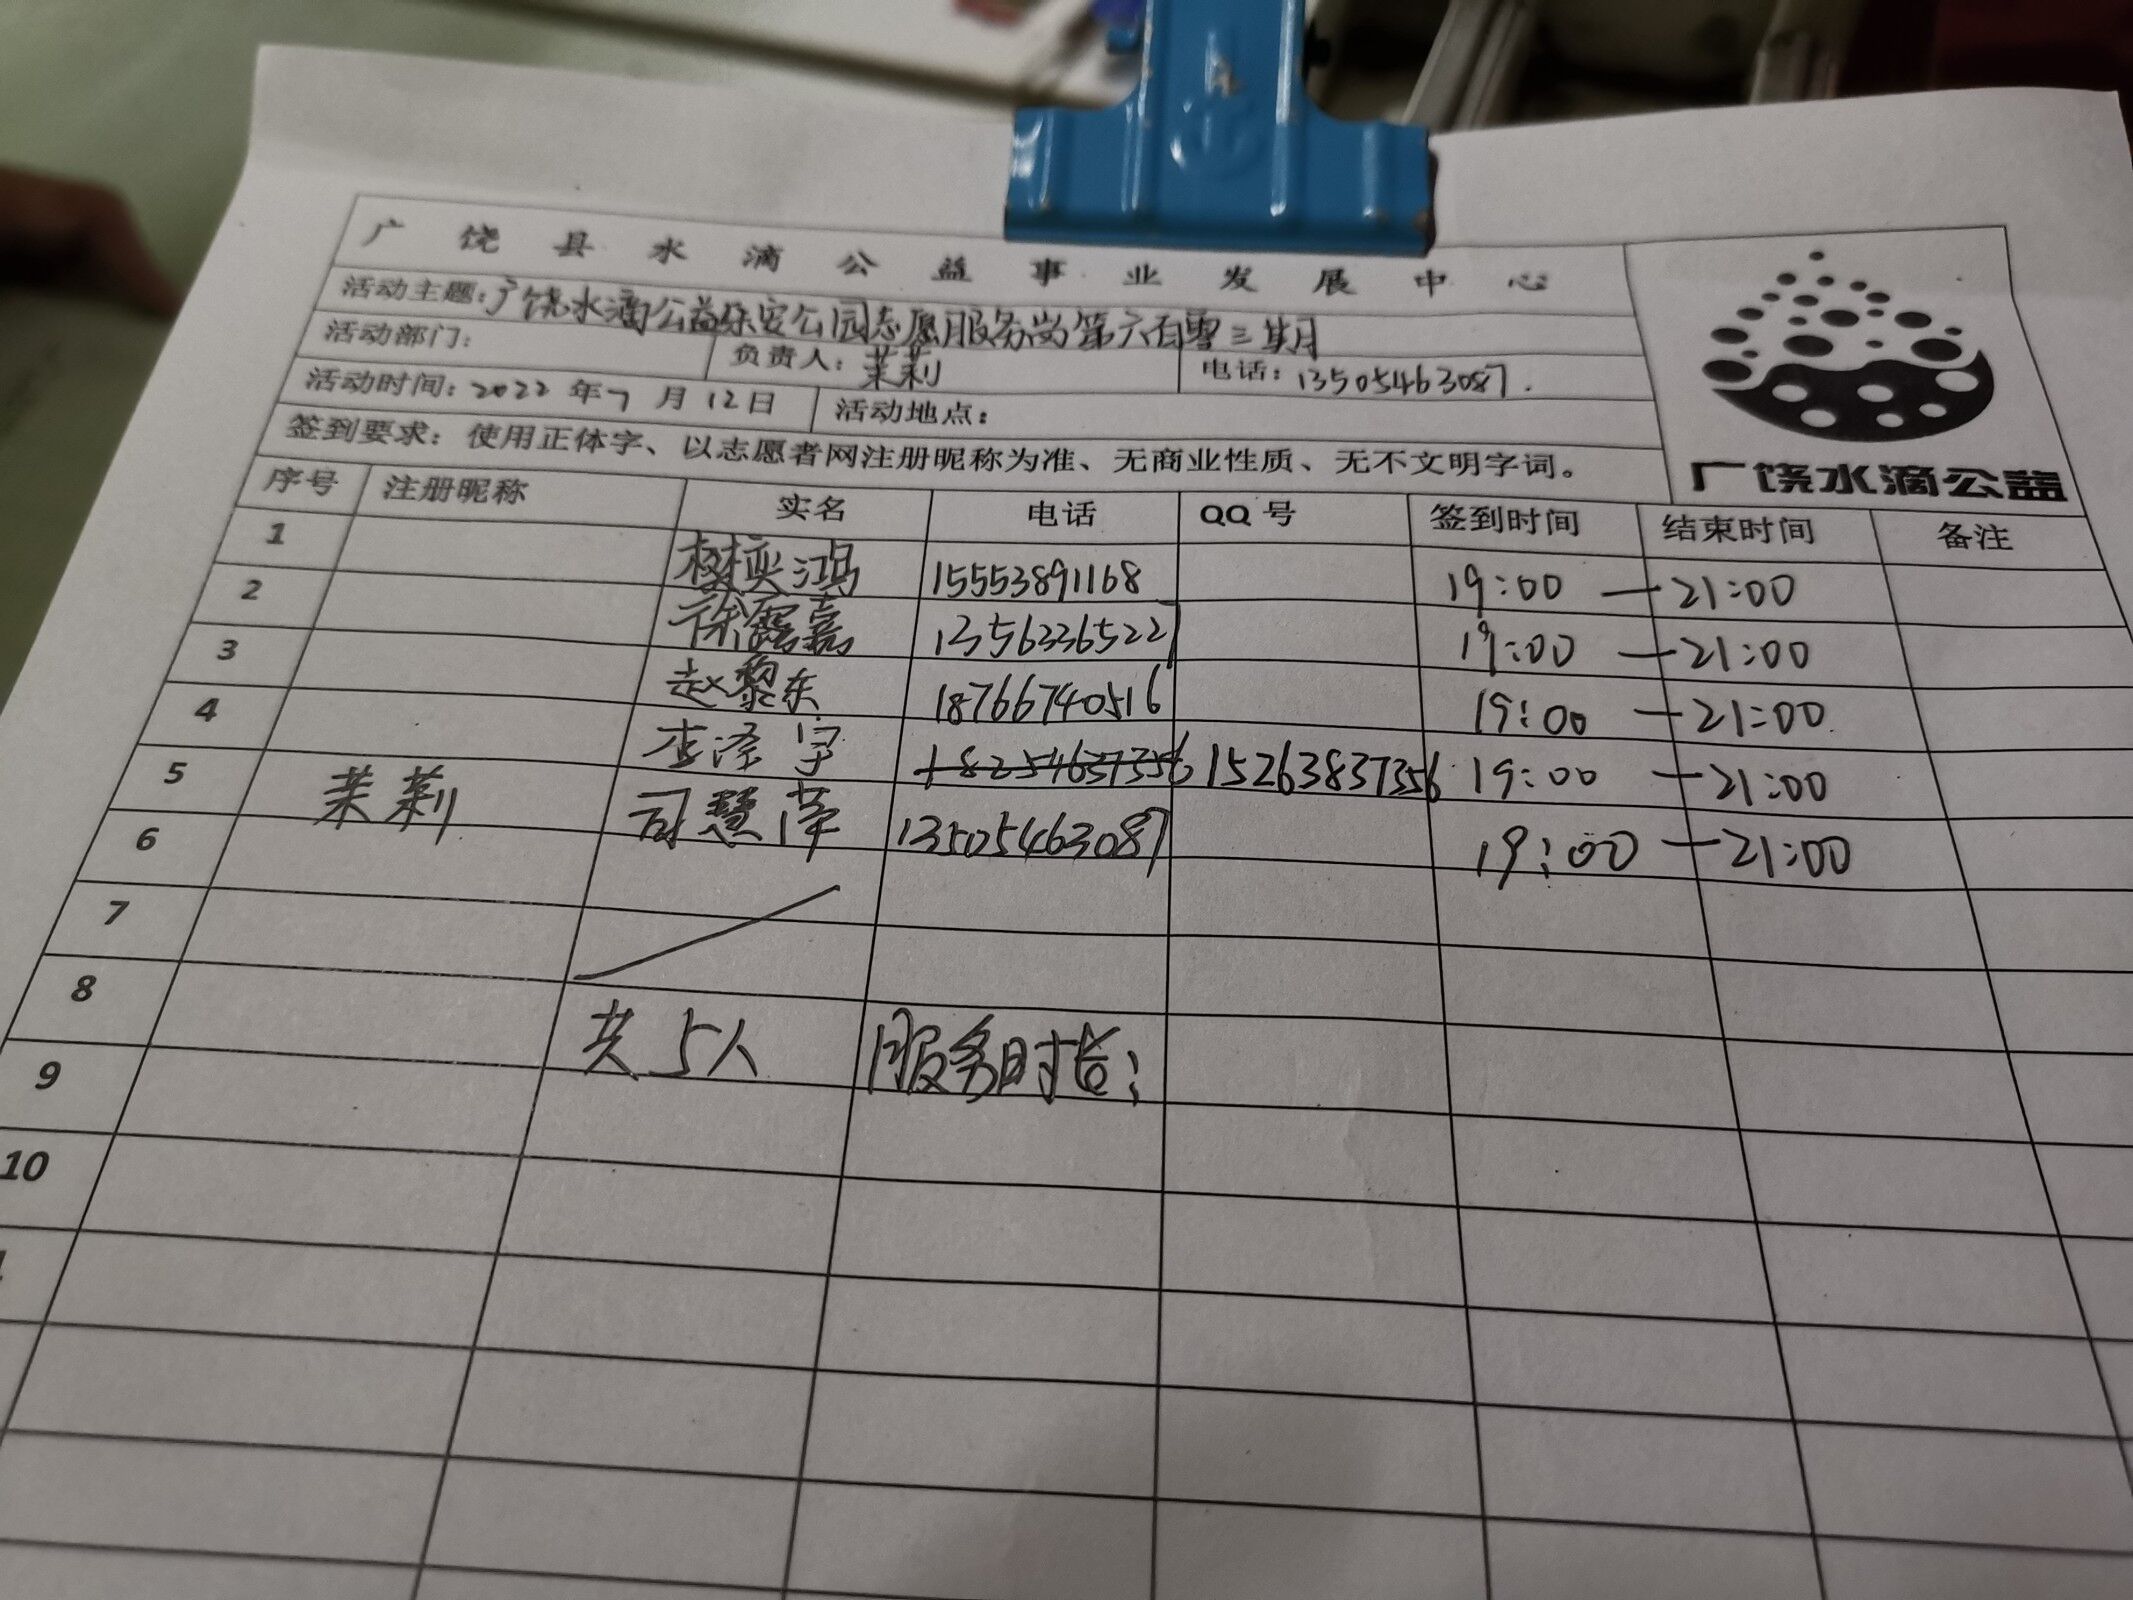 广饶县水滴公益事业发展中心
活动主题:广饶水滴公益乐安公园志愿服务岗第六百零三期
活动部门:
负责人:茉莉
电话:13505463087.
活动时间:2022年7月12日
活动地点:
签到要求:使用正体字、以志愿者网注册昵称为准、无商业性质、无不文明字词。
广饶水滴公益
序号 注册昵称 实名 电话 QQ号 签到时间 结束时间 备注
1 奕鸿 15553891168 19:00 — 21:00
2 徐嘉 13563365227 19:00 — 21:00
3 赵黎东 18766740516 19:00 — 21:00
4 李泽宇 18254637356 15263837356 19:00 — 21:00
5 茉莉 司慧萍 13505463087 19:00 — 21:00
6
7
8 共5人 服务时长:
9
10